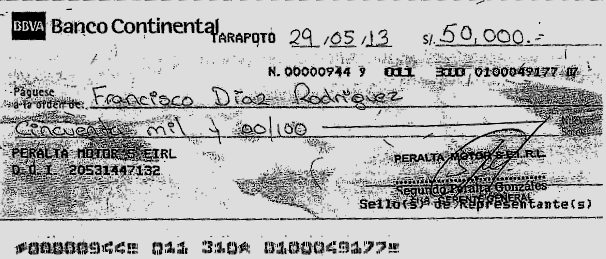 BBVA Banco Continental
TARAPOTO 29/05/13 S/. 50,000.-
N. 00000944 9 011 310 0100049177 07
Páguese
a la orden de: Francisco Díaz Rodríguez
Cincuenta mil y 00/100
PERALTA MOTOR'S EIRL
D.O.I. 20531447132
PERALTA MOTOR'S E.I.R.L.
Segundo Peralta Gonzáles
GERENTE GENERAL
Sello(s) de Representante(s)
00000944 011 310 0100049177